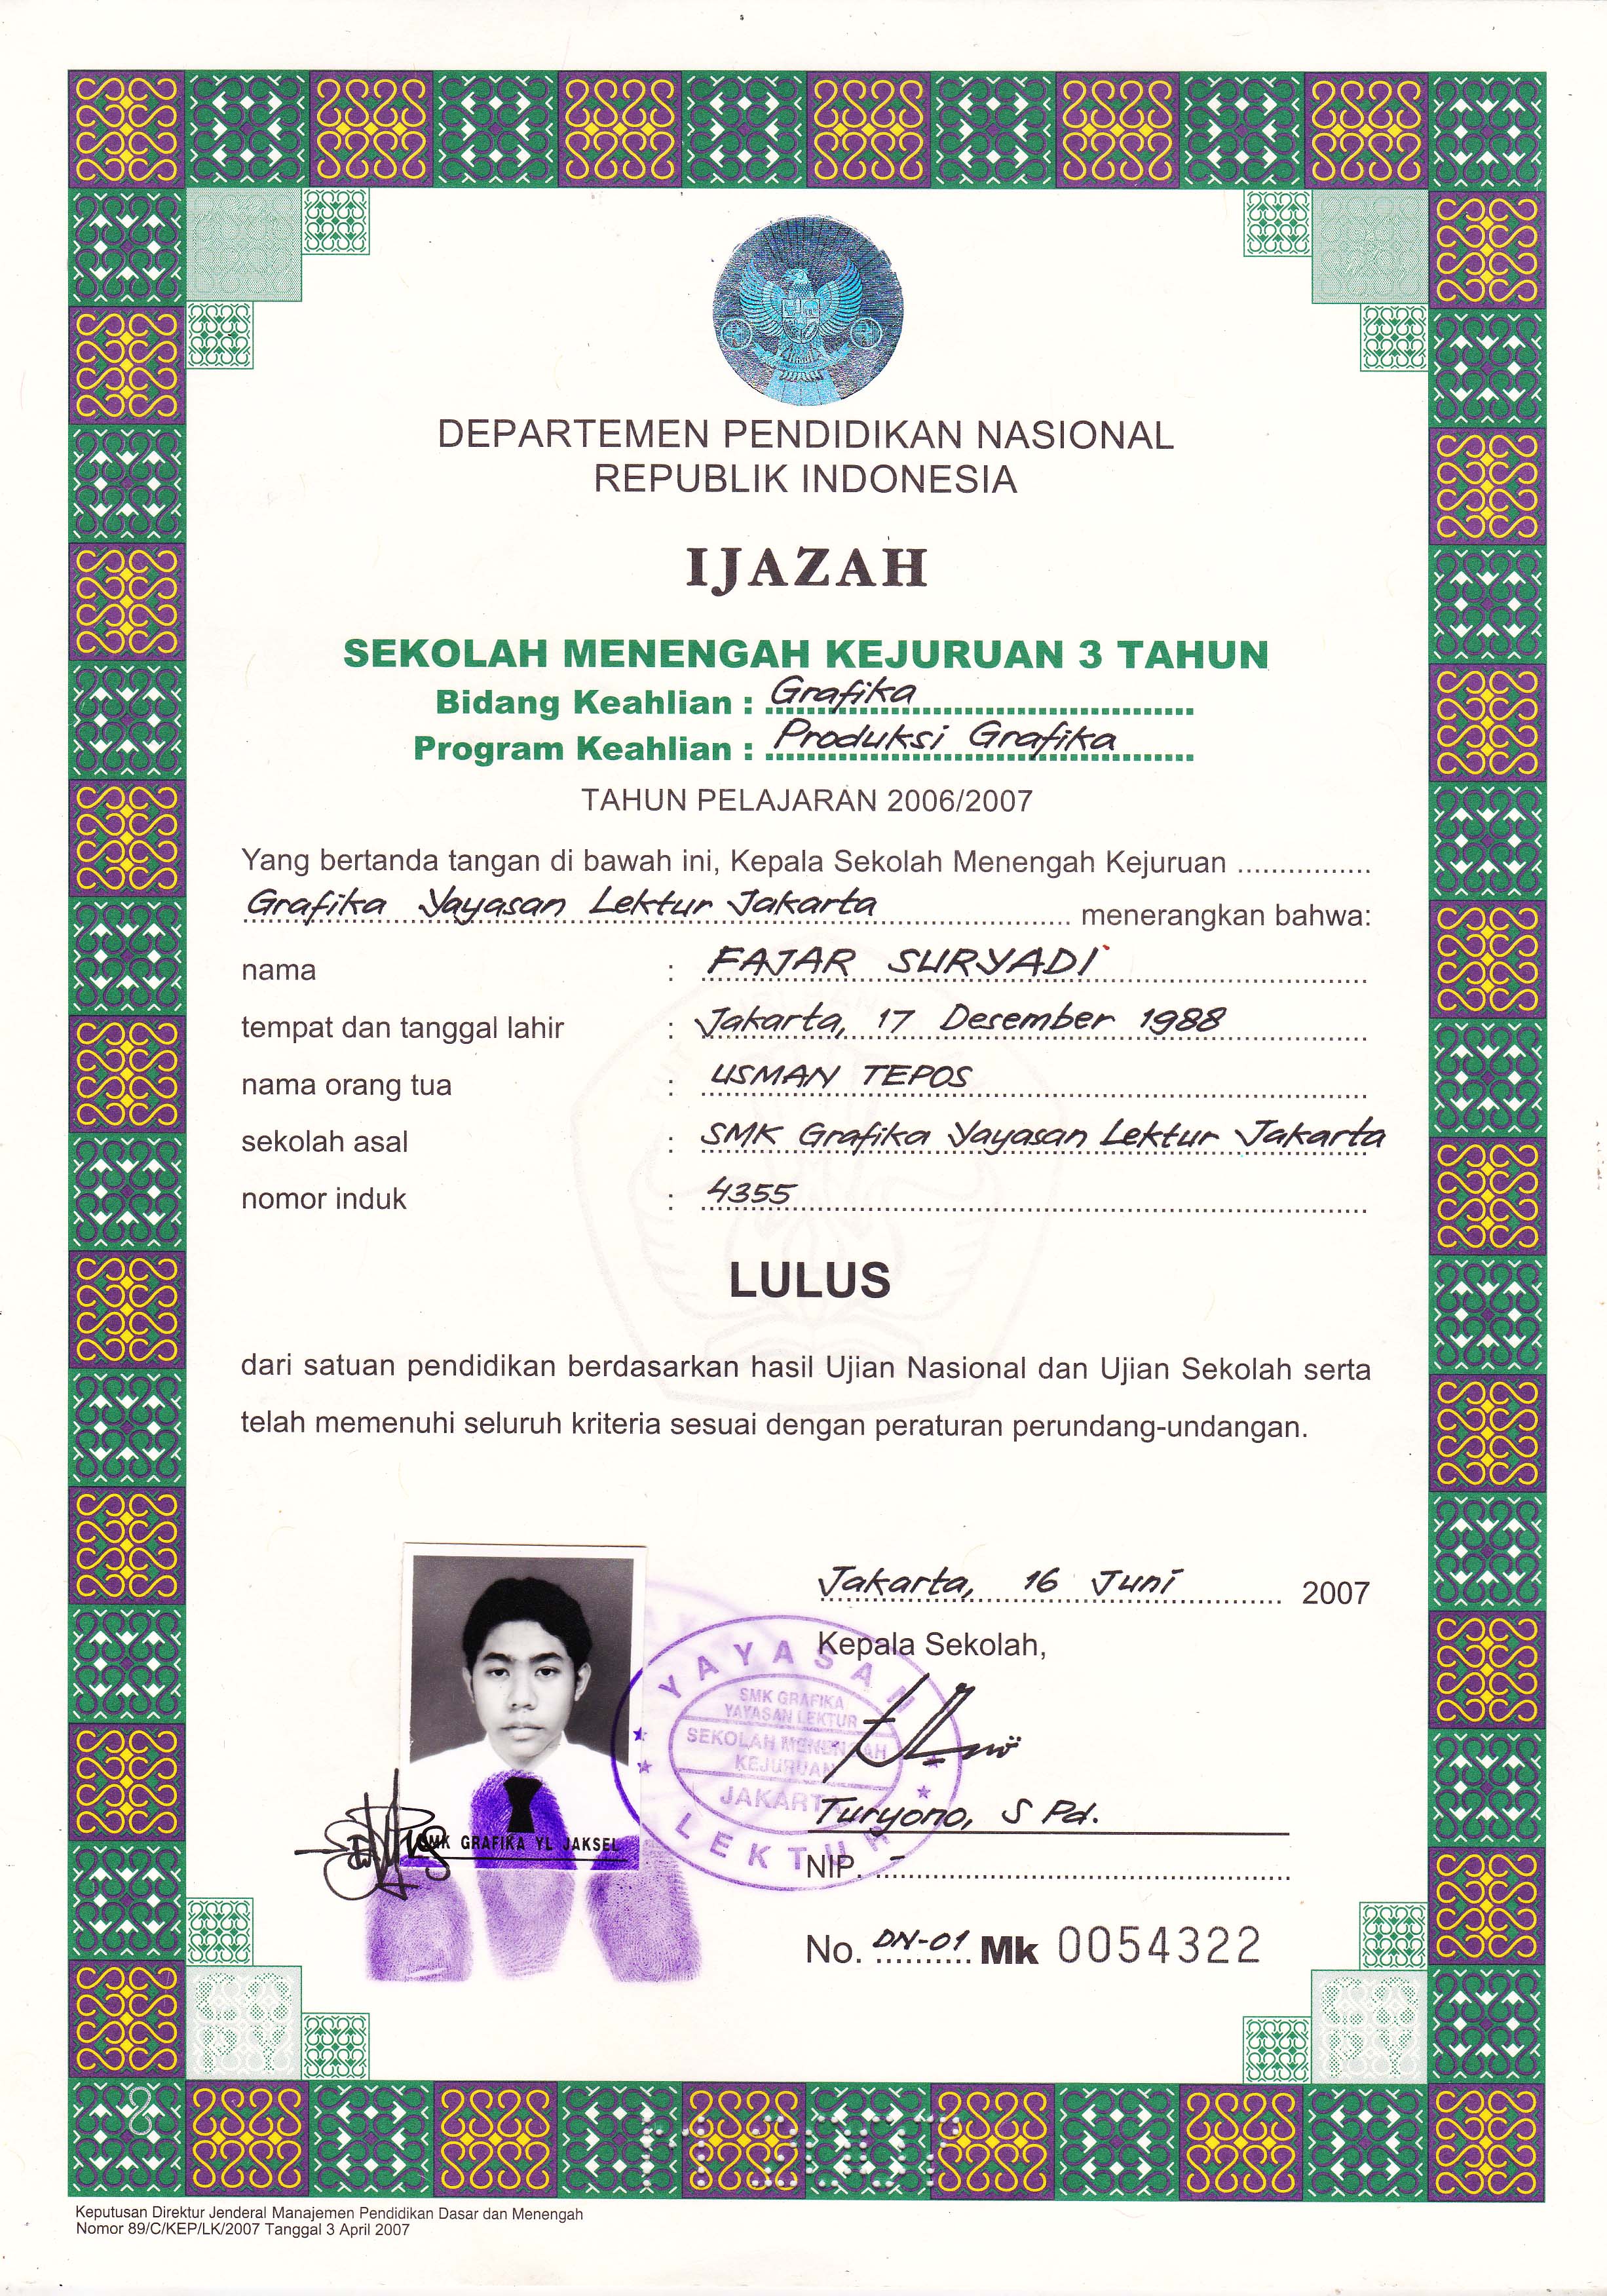 DEPARTEMEN PENDIDIKAN NASIONAL
REPUBLIK INDONESIA
IJAZAH
SEKOLAH MENENGAH KEJURUAN 3 TAHUN
Bidang Keahlian : Grafika
Program Keahlian : Produksi Grafika
TAHUN PELAJARAN 2006/2007
Yang bertanda tangan di bawah ini, Kepala Sekolah Menengah Kejuruan ................
Grafika Yayasan Lektur Jakarta menerangkan bahwa:
nama : FAJAR SURYADI
tempat dan tanggal lahir : Jakarta, 17 Desember 1988
nama orang tua : USMAN TEPOS
sekolah asal : SMK Grafika Yayasan Lektur Jakarta
nomor induk : 4355
LULUS
dari satuan pendidikan berdasarkan hasil Ujian Nasional dan Ujian Sekolah serta
telah memenuhi seluruh kriteria sesuai dengan peraturan perundang-undangan.
Jakarta, 16 Juni 2007
Kepala Sekolah,
YAYASAN
SMK GRAFIKA
YAYASAN LEKTUR
SEKOLAH MENENGAH
KEJURUAN
JAKARTA
LEKTUR
Turyono, S Pd.
SMK GRAFIKA YL JAKSEL
NIP. -
No. DN-01 Mk 0054322
COPY
COPY
Keputusan Direktur Jenderal Manajemen Pendidikan Dasar dan Menengah
Nomor 89/C/KEP/LK/2007 Tanggal 3 April 2007